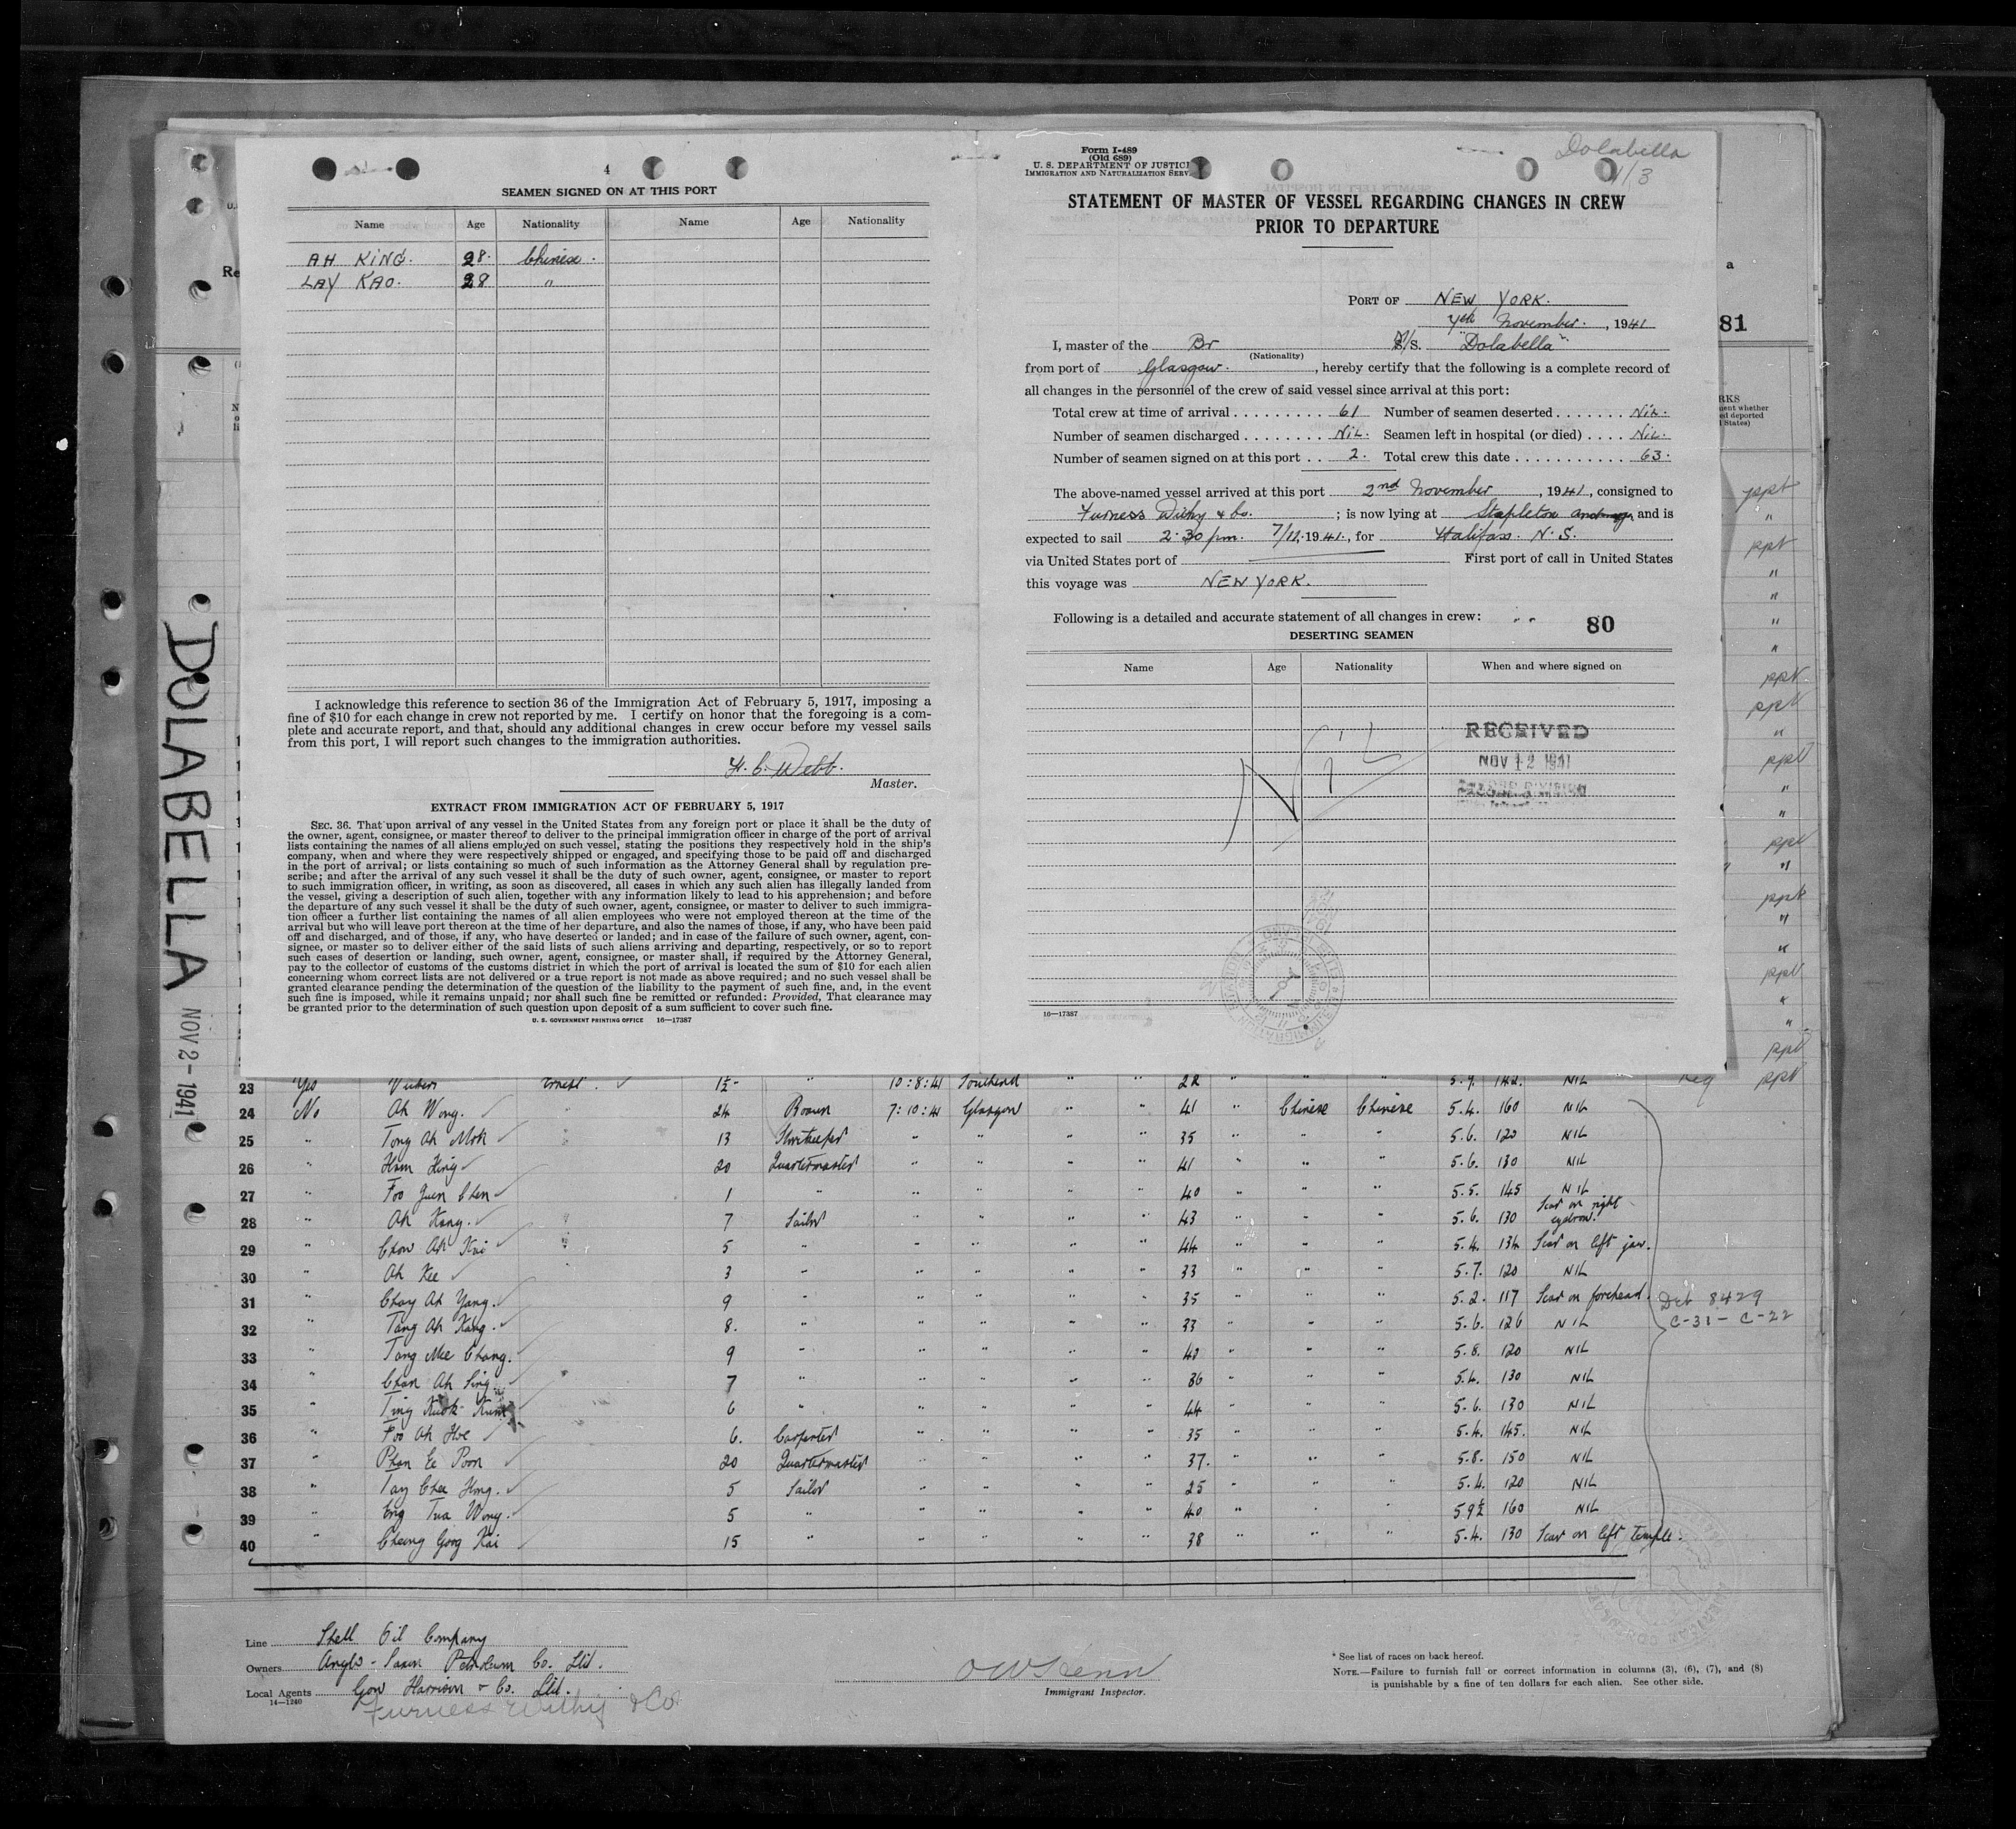 4
SEAMEN SIGNED ON AT THIS PORT
Name Age Nationality Name Age Nationality
AH KING. 28. Chinese.
LAY KAO. 28 "
I acknowledge this reference to section 36 of the Immigration Act of February 5, 1917, imposing a
fine of $10 for each change in crew not reported by me. I certify on honor that the foregoing is a com-
plete and accurate report, and that, should any additional changes in crew occur before my vessel sails
from this port, I will report such changes to the immigration authorities.
Webb.
Master.
EXTRACT FROM IMMIGRATION ACT OF FEBRUARY 5, 1917
SEC. 36. That upon arrival of any vessel in the United States from any foreign port or place it shall be the duty of
the owner, agent, consignee, or master thereof to deliver to the principal immigration officer in charge of the port of arrival
lists containing the names of all aliens employed on such vessel, stating the positions they respectively hold in the ship's
company, when and where they were respectively shipped or engaged, and specifying those to be paid off and discharged
in the port of arrival; or lists containing so much of such information as the Attorney General shall by regulation pre-
scribe; and after the arrival of any such vessel it shall be the duty of such owner, agent, consignee, or master to report
to such immigration officer, in writing, as soon as discovered, all cases in which any such alien has illegally landed from
the vessel, giving a description of such alien, together with any information likely to lead to his apprehension; and before
the departure of any such vessel it shall be the duty of such owner, agent, consignee, or master to deliver to such immigra-
tion officer a further list containing the names of all alien employees who were not employed thereon at the time of the
arrival but who will leave port thereon at the time of her departure, and also the names of those, if any, who have been paid
off and discharged, and of those, if any, who have deserted or landed; and in case of the failure of such owner, agent, con-
signee, or master so to deliver either of the said lists of such aliens arriving and departing, respectively, or so to report
such cases of desertion or landing, such owner, agent, consignee, or master shall, if required by the Attorney General,
pay to the collector of customs of the customs district in which the port of arrival is located the sum of $10 for each alien
concerning whom correct lists are not delivered or a true report is not made as above required; and no such vessel shall be
granted clearance pending the determination of the question of the liability to the payment of such fine, and, in the event
such fine is imposed, while it remains unpaid; nor shall such fine be remitted or refunded: Provided, That clearance may
be granted prior to the determination of such question upon deposit of a sum sufficient to cover such fine.
U. S. GOVERNMENT PRINTING OFFICE 16—17387
Form I-489
(Old 689)
U. S. DEPARTMENT OF JUSTICE
IMMIGRATION AND NATURALIZATION SERV
Dolabella
1/3
STATEMENT OF MASTER OF VESSEL REGARDING CHANGES IN CREW
PRIOR TO DEPARTURE
PORT OF NEW YORK.
7th November, 1941
I, master of the Br M/S. "Dolabella"
(Nationality)
from port of Glasgow., hereby certify that the following is a complete record of
all changes in the personnel of the crew of said vessel since arrival at this port:
Total crew at time of arrival 61 Number of seamen deserted NIL.
Number of seamen discharged NIL. Seamen left in hospital (or died) NIL.
Number of seamen signed on at this port 2. Total crew this date 63.
The above-named vessel arrived at this port 2nd November, 1941, consigned to
Furness Withy & Co.; is now lying at Stapleton and is
expected to sail 2.30 pm. 7/11.1941., for Halifax. N.S.
via United States port of First port of call in United States
this voyage was NEW YORK.
Following is a detailed and accurate statement of all changes in crew: 80
DESERTING SEAMEN
Name Age Nationality When and where signed on
Nil
RECEIVED
NOV 12 1941
16—17387
81
DOLABELLA
NOV 2 - 1941
23 Yes 1½ " 10:8:41 " " 22 " " " 5.9. 142. NIL ppt
24 No Ah Wong. 24 Bosun 7:10:41 Glasgow " " 41 " Chinese Chinese 5.4. 160 NIL
25 " Tong Ah Moh 13 Storekeeper " " " " 35 " " " 5.6. 120 NIL
26 " Ham Hing 20 Quartermaster " " " " 41 " " " 5.6. 130 NIL
27 " Foo Juen Chen 1 " " " " " 40 " " " 5.5. 145 NIL
28 " Ah Kong. 7 Sailor " " " " 43 " " " 5.6. 130 Scar on right eyebrow.
29 " Chow Ah Kai 5 " " " " " 44 " " " 5.4. 134 Scar on left jaw.
30 " Ah Kee 3 " " " " " 33 " " " 5.7. 120 NIL
31 " Choy Ah Yang. 9 " " " " " 35 " " " 5.2. 117 Scar on forehead.
32 " Tang Ah Kang. 8. " " " " " 33 " " " 5.6. 126 NIL
33 " Tong Mee Chang. 9 " " " " " 40 " " " 5.8. 120 NIL
34 " Chan Ah Sing 7 " " " " " 36 " " " 5.4. 130 NIL
35 " Ting Kuok 6 " " " " " 44 " " " 5.6. 130 NIL
36 " Foo Ah Hoe 6. Carpenter " " " " 35 " " " 5.4. 145. NIL
37 " Phan Ee Poon 20 Quartermaster " " " " 37. " " " 5.8. 150 NIL
38 " Tay Chee Hong. 5 Sailor " " " " 25 " " " 5.4. 120 NIL
39 " Eng Tua Wong. 5 " " " " " 40 " " " 5.9½ 160 NIL
40 " Cheong Gong Kai 15 " " " " " 38 " " " 5.4. 130 Scar on left temple.
8429
C-31 - C-22
Line Shell Oil Company
Owners Anglo-Saxon Petroleum Co. Ltd.
Local Agents Gow Harrison & Co. Ltd.
14—1240
Furness Withy & Co
Immigrant Inspector.
* See list of races on back hereof.
NOTE.—Failure to furnish full or correct information in columns (3), (6), (7), and (8)
is punishable by a fine of ten dollars for each alien. See other side.